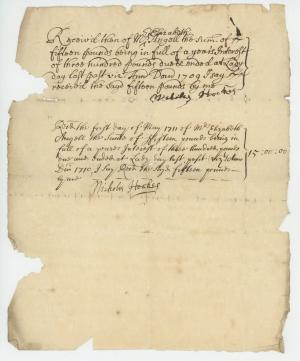 Elizabeth
Receiv'd then of Mrs Angell the Sum of
fifteen pounds being in full of a years Interest
of three hundred pounds due & ended at Lady
day last past viz Ann Dom 1709 I say
received the said fifteen pounds by me
Nicholas Hookes
Recd the first day of May 1711 of Mrs Elizabeth
Angell the Sume of fifteen pounds being in
full of a years Interest of three hundred pounds
due and ended at Lady day last past
Dm 1710 I say Recd the Sayd fifteen pounds
by me
15:00:00
Nicholas Hookes